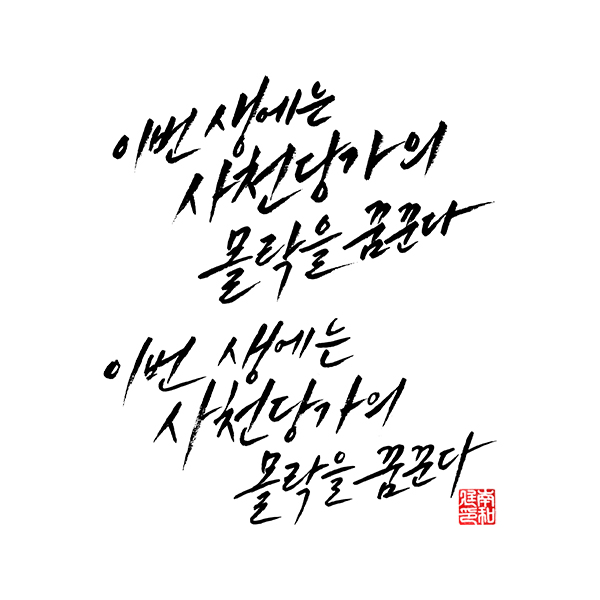 이번 생에는
사천당가의
몰락을 꿈꾼다
이번 생에는
사천당가의
몰락을 꿈꾼다